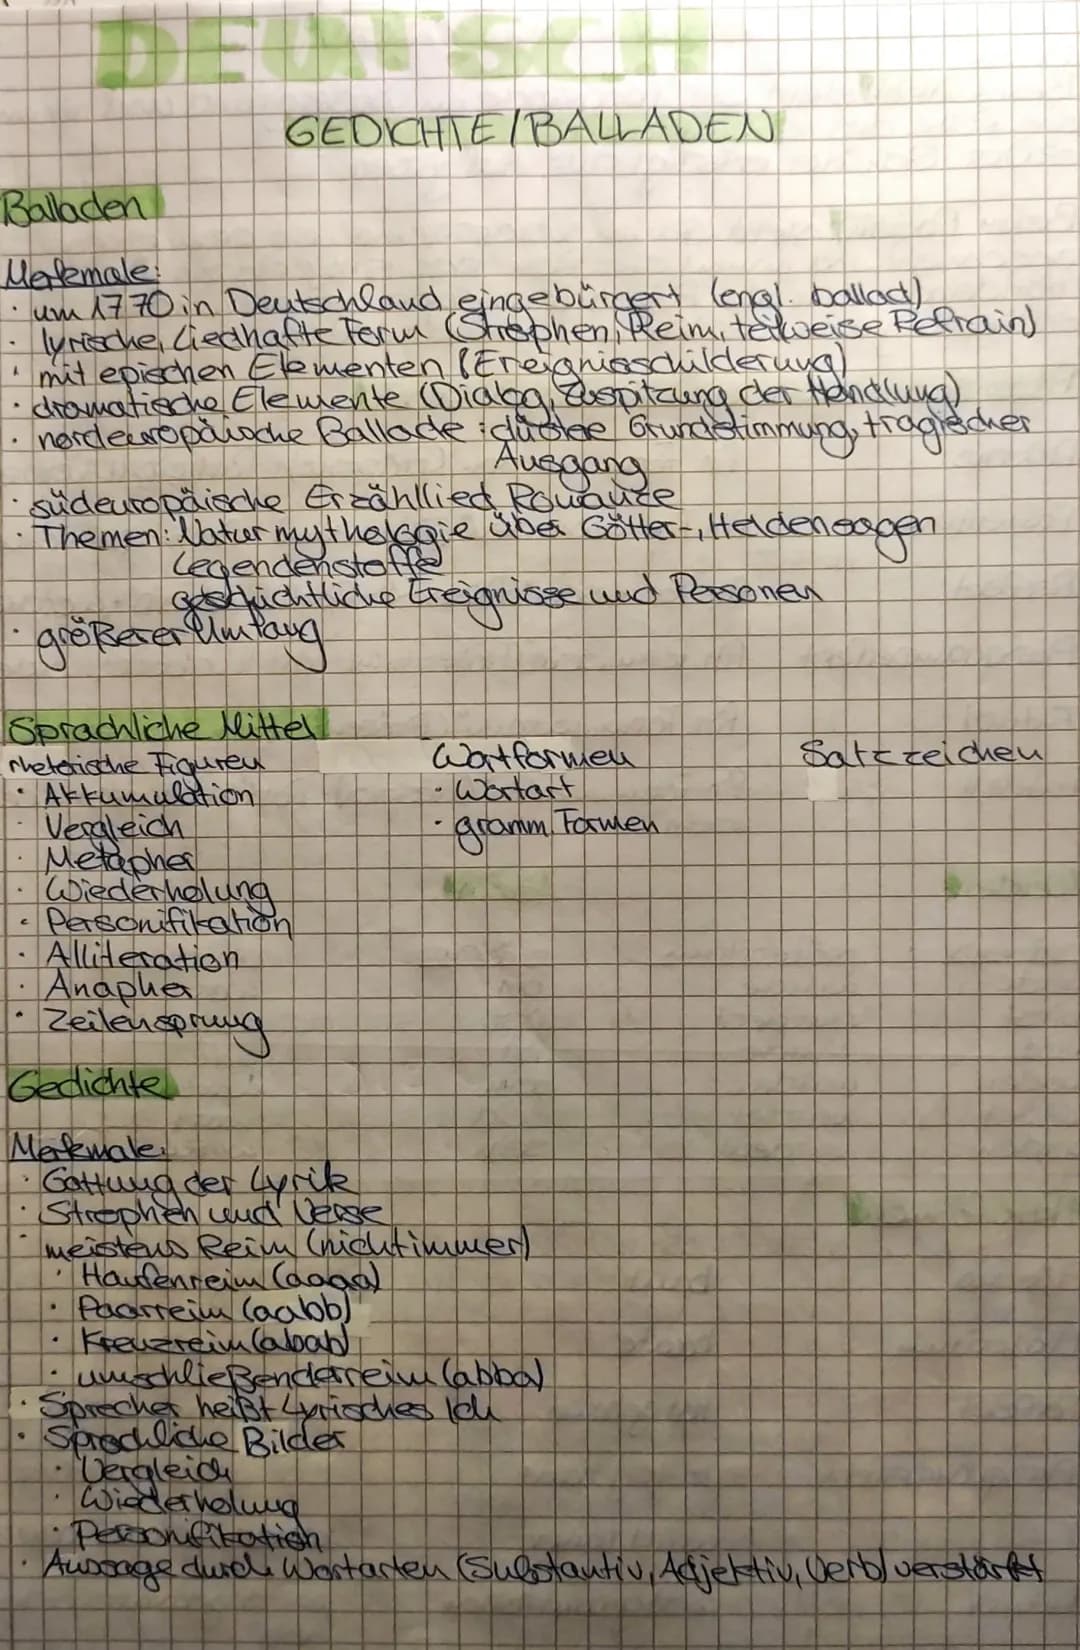 DEUTSCH
GEDICHTE / BALLADEN
Balladen
Merkmale:
· um 1770 in Deutschland eingebürgert (engl. ballad)
· lyrische, liedhafte Form (Strophen, Reim, teilweise Refrain)
· mit epischen Elementen (Ereignisschilderung)
· dramatische Elemente (Dialog, Zuspitzung der Handlung)
· nordeuropäische Ballade : düstere Grundstimmung, tragischer
Ausgang
· südeuropäische Erzähllied Romanze
· Themen: Naturmythologie über Götter-, Heldensagen
Legendenstoffe
geschichtliche Ereignisse und Personen
· größerer Umfang
Sprachliche Mittel
rhetorische Figuren Wortformen Satzzeichen
· Akkumulation · Wortart
· Vergleich · gramm. Formen
· Metapher
· Wiederholung
· Personifikation
· Alliteration
· Anapher
· Zeilensprung
Gedichte
Merkmale:
· Gattung der Lyrik
· Strophen und Verse
· meistens Reim (nicht immer)
· Haufenreim (aaaa)
· Paarreim (aabb)
· Kreuzreim (abab)
· umschließenderreim (abba)
· Sprecher heißt Lyrisches Ich
· Sprachliche Bilder
· Vergleich
· Wiederholung
· Personifikation
· Aussage durch Wortarten (Substantiv, Adjektiv, Verb) verstärkt